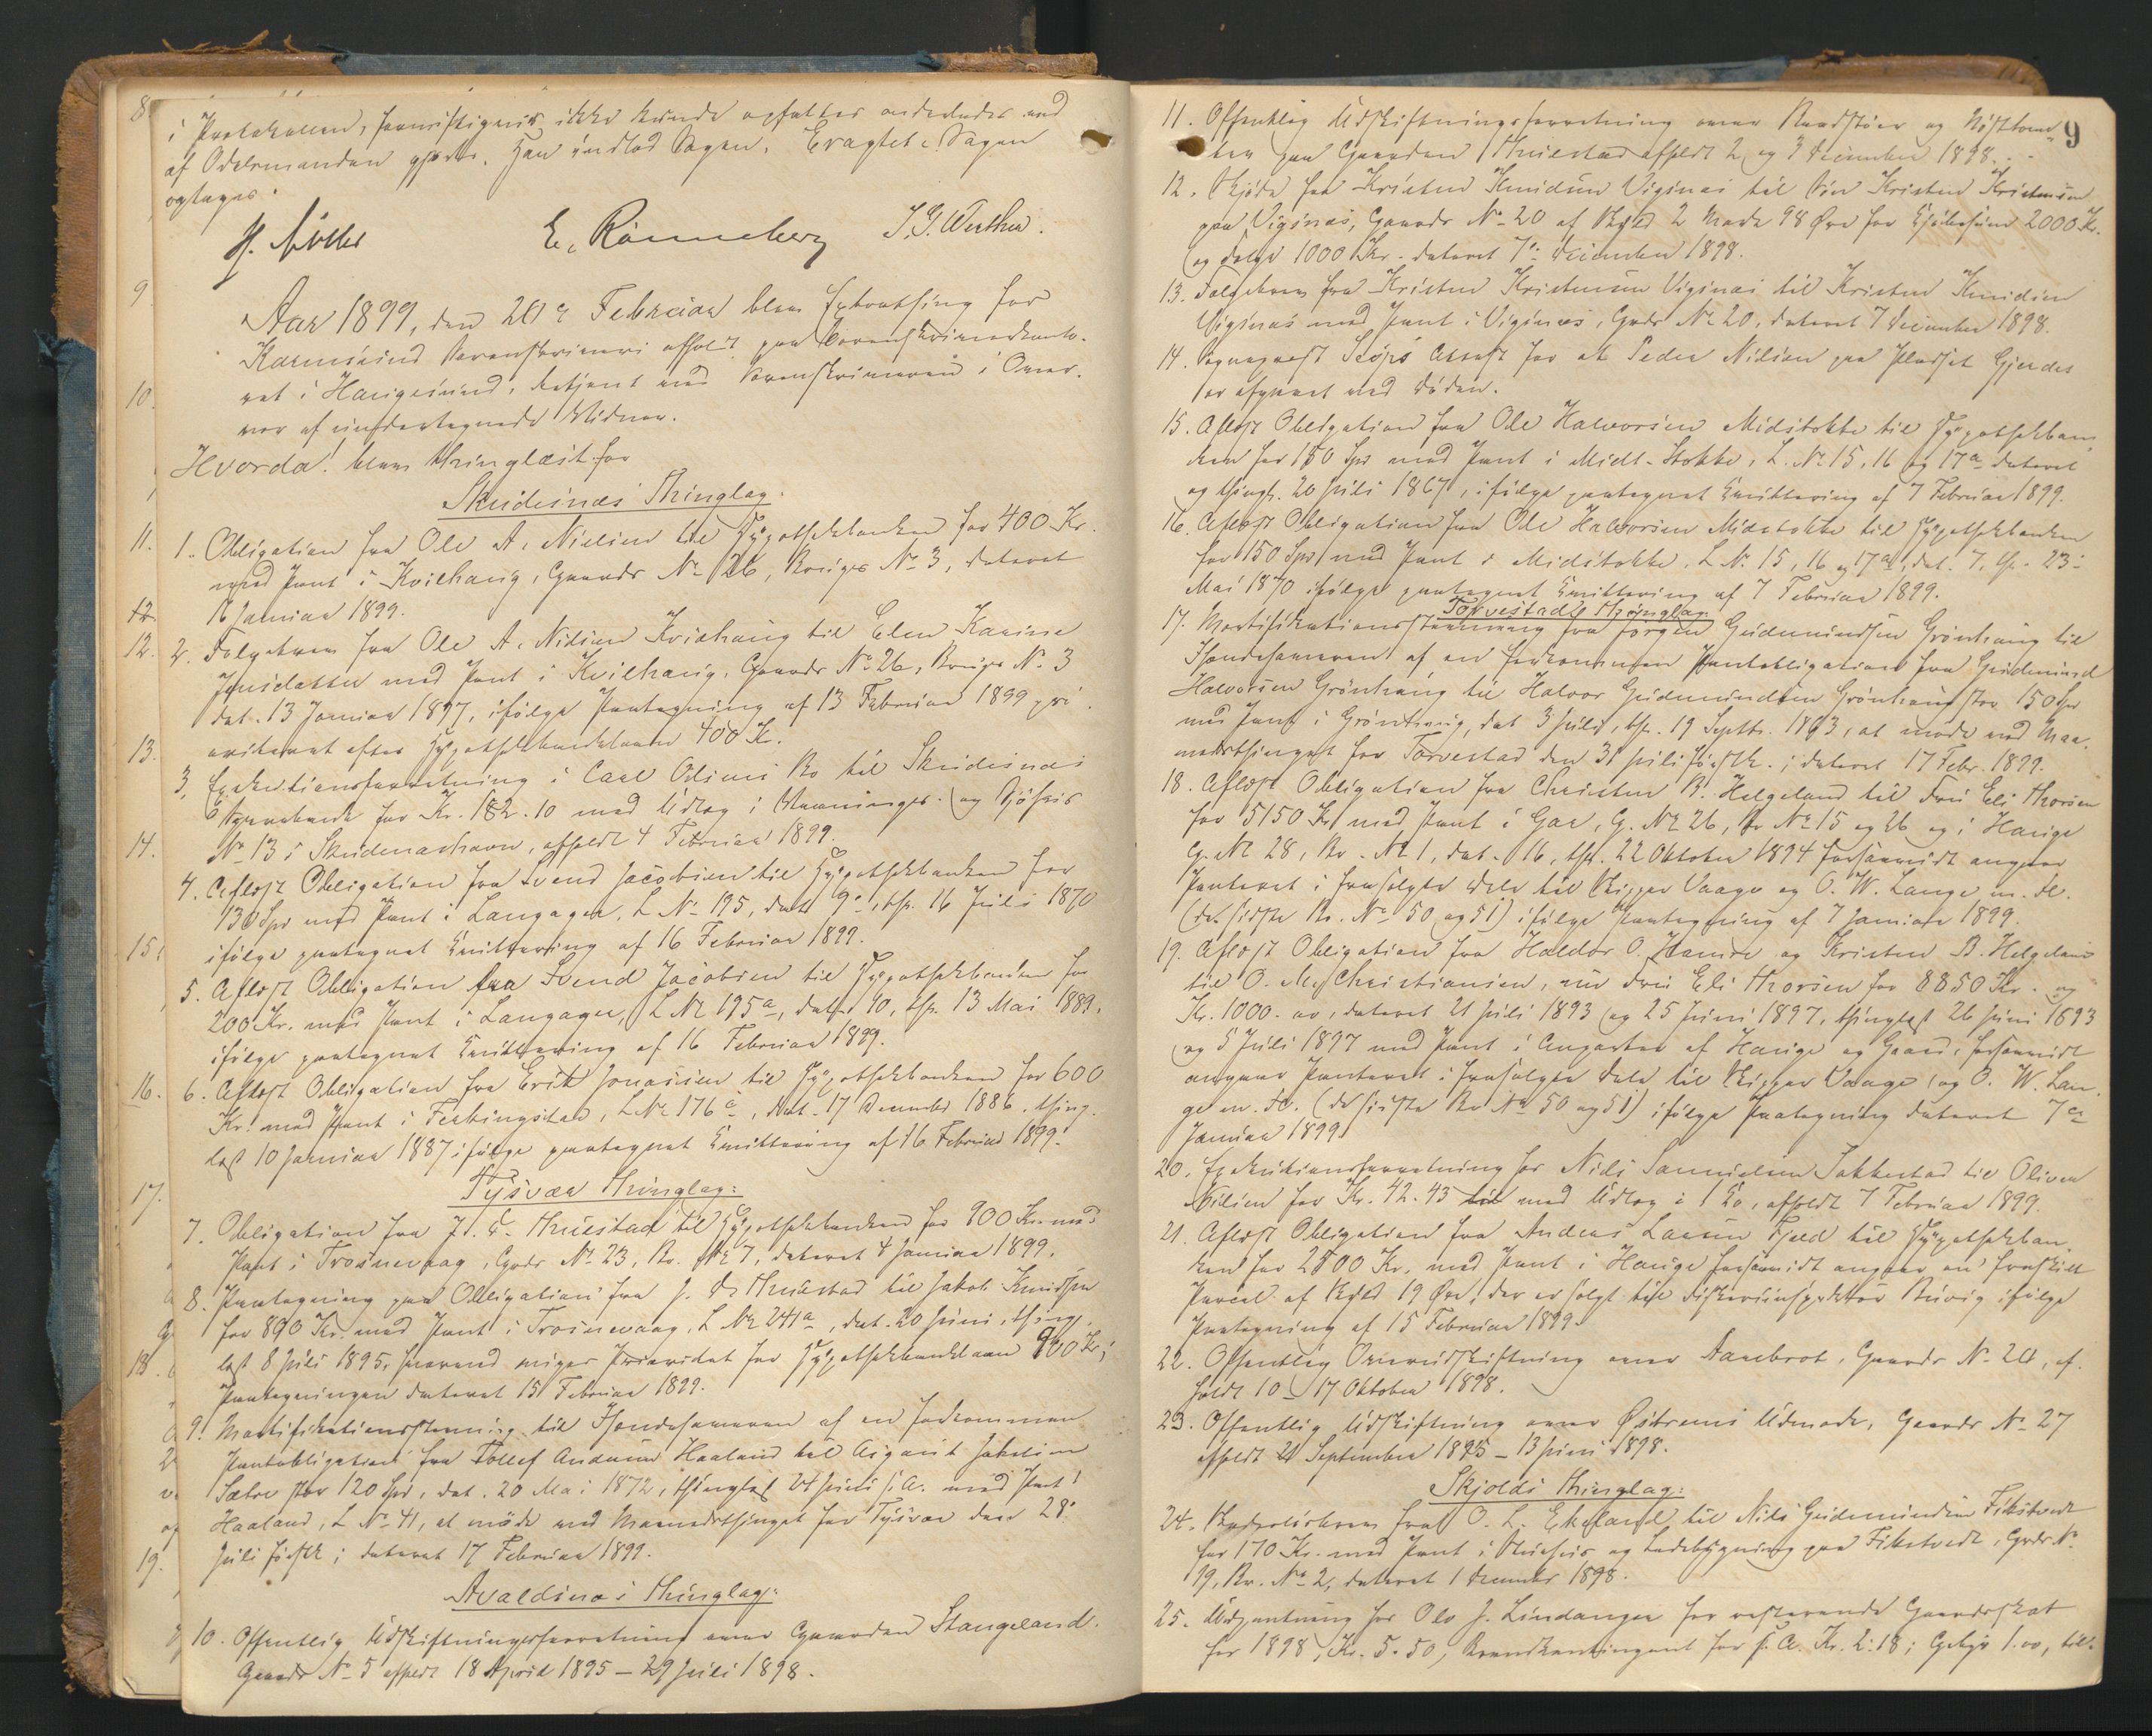 i Protokollen, formentligvis ikke kunde opfattes anderledes end
af Odelsmanden gjort. Han indlod Sagen. Eragtet: Sagen
optages.
E. Rönneberg
9
Aar 1899, den 20de Februar blev Extrathing for
Karmsund Sorenskriveri afholdt paa Sorenskriverkonto-
ret i Haugesund, betjent ved Sorenskriveren i Overvær
vær af undertegnede Vidner.
Hvorda! blev thinglæst for
Skudesnæs Thinglag.
1. Obligation fra Ole A. Nielsen til Hypothekbanken for 400 Kr.
med Pant i Kvilhaug, Gaards No 26, Brugs No 3, dateret
16 Januar 1899.
2. Følgebrev fra Ole A. Nilsen Kvilhaug til Elen Karine
Jensdatter med Pant i Kvilhaug, Gaards No 26, Brugs No 3
dat. 13 Januar 1897, ifølge Paategning af 13 Februar 1899 pri-
oriteret efter Hypothekbanklaan 400 Kr.
3. Exekutionsforretning i Carl Olsens Bo til Skudesnæs
Sparebank for Kr. 182.10 med Udlæg i Vaaningen og Sjøhus
No 13 i Skudeneshavn, afholdt 4 Februar 1899.
4. Aflyst Obligation fra Svend Jacobsen til Hypothekbanken for
130 Spd med Pant i Langager, L No 195, dat. 9, thgl. 16 Juli 1870
ifølge paategnet Kvittering af 16 Februar 1899.
5. Aflyst Obligation fra Svend Jacobsen til Hypothekbanken for
200 Kr. med Pant i Langager, L No 195a, dat. 10, thgl. 13 Mai 1889,
ifølge paategnet Kvittering af 16 Februar 1899.
6. Aflyst Obligation fra Erik Jonassen til Hypothekbanken for 600
Kr. med Pant i Ferkingstad, L No 176c, dat. 17 December 1886, thing-
læst 10 Januar 1887 ifølge paategnet Kvittering af 16 Februar 1899.
Tysvær Thinglag:
7. Obligation fra J. D. Thuestad til Hypothekbanken for 900 Kr. med
Pant i Trosnevaag, Gards No 23, Br. No 7, dateret 4 Januar 1899.
8. Paategning paa Obligation fra J. D. Thuestad til Jakob Knudsen
for 890 Kr. med Pant i Trosnevaag, L No 241a, dat. 20 Juni, thing-
læst 8 Juli 1895, hvorved viges Prioritet for Hypothekbanklaan 900 Kr;
Paategningen dateret 15 Februar 1899.
9. Mortifikationsstevning til Ihændehaveren af en forkommen
Pantobligation fra Tollef Andersen Haaland til Aigaut Jakobsen
Sætre stor 120 Spd, dat. 20 Mai 1872, thinglæst 24 Juni s. A. med Pant i
Haaland, L No 41, at møde ved Maanedsthinget for Tysvær den 28
Juli førstk; dateret 17 Februar 1899.
Avaldsnæs Thinglag:
10. Offentlig Udskiftningsforretning over Gaarden Stangeland.
Gaards No 5 afholdt 18 April 1895 - 29 Juli 1898.
9
11. Offentlig Udskiftningsforretning over Naustøer og Nøsttom-
ter paa Gaarden Thuestad afholdt 2 og 3 December 1898.
12. Skjøde fra Kristen Knudsen Vigsnæs til Søn Kristen Kristensen
paa Vigsnæs, Gaards No 20 af Skyld 2 Mark 98 Øre for Kjøbesum 2000 Kr.
og Følge 1000 Kr. dateret 7de December 1898.
13. Følgebrev fra Kristen Kristensen Vigsnæs til Kristen Knudsen
Vigsnæs med Pant i Vigsnæs, Gards No 20, dateret 7 December 1898.
14. Sogneprest Seips Attest for at Peder Nilsen paa Pladset Gjerdet
er afgaaet ved Døden.
15. Aflyst Obligation fra Ole Halvorsen Midstokke til Hypothekban-
ken for 150 Spd med Pant i Midt-Stokke, L. No 15, 16 og 17a dateret
og thingl. 20 Juli 1867, ifølge paategnet Kvittering af 7 Februar 1899.
16. Aflyst Obligation fra Ole Halvorsen Midstokke til Hypothekbanken
for 150 Spd med Pant i Midstokke, L No 15, 16 og 17a, dat. 7, thgl. 23
Mai 1870 ifølge paategnet Kvittering af 7 Februar 1899.
Torvestads Thinglag
17. Mortifikationsstevning fra Jørgen Gudmundsen Grønhaug til
Ihændehaveren af en forkommen Pantobligation fra Gudmund
Halvorsen Grønhaug til Halvor Gudmundsen Grønhaug stor 150 Spd
med Pant i Grønhaug, dat 3 Juli, thgl. 19 Septbr. 1863, at møde ved Maa-
nedsthinget for Torvestad den 31 Juli førstk.; dateret 17 Febr. 1899.
18. Aflyst Obligation fra Christen B. Helgeland til Fru Eli Thorsen
for 5150 Kr. med Pant i Gar, G. No 26, Br No 15 og 26 og i Hauge
G. No 28, Br. No 1, dat. 16, thgl. 22 Oktober 1894 forsaavidt angaar
Panteret i frasolgte Dele til Skipper Vaage og O. W. Lange m. fl.
(det sidste Br. No 50 og 51) ifølge Paategning af 7 Januar 1899.
19. Aflyst Obligation fra Haldor O. Hamre og Kristen B. Helgeland
til O. M. Christiansen, nu Fru Eli Thorsen for 8850 Kr. og
Kr. 1000.00, dateret 21 Juli 1893 og 25 Juni 1897, thinglæst 26 Juni 1893
og 5 Juli 1897 med Pant i Anparter af Hauge og Gaard, forsaavidt
angaar Panteret i frasolgte Dele til Skipper Vaage og O. W. Lan-
ge m. fl. (de sidste Br No 50 og 51) ifølge Paategning dateret 7de
Januar 1899.
20. Exekutionsforretning hos Nils Samuelsen Sakkestad til Oliver
Nilsen for Kr. 42.43 med Udlæg i 1 Ko, afholdt 7 Februar 1899.
21. Aflyst Obligation fra Andreas Larsen Fjeld til Hypothekban-
ken for 2800 Kr. med Pant i Hauge forsaavidt angaar en fraskilt
Parcel af Skyld 19 Øre, der er solgt til Fiskeriinspektør Buvig ifølge
Paategning af 15 Februar 1899.
22. Offentlig Overudskiftning over Aarebrot, Gaards No 24, af-
holdt 10 - 17 Oktober 1898.
23. Offentlig Udskiftning over Østrems Udmark, Gaards No 27
afholdt 21 September 1895 - 13 Juni 1898.
Skjolds Thinglag:
24. Skadesløsbrev fra O. L. Ekeland til Nils Gudmundsen Fikstvedt
for 170 Kr. med Pant i Stuehus og Ladebygning paa Fikstvedt, Gards No
19, Br. No 2, dateret 1 December 1898.
25. Udpantning hos Ole J. Lindanger for resterende Gaardsskat
for 1898, Kr. 5.50, Brandkontingent for s. A. Kr. 2.18; Gebyr 1.00, til-